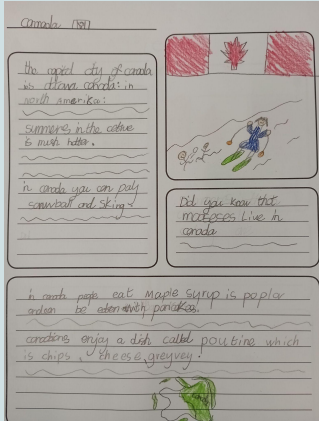 Cannada
the capitel city of canada
is otawa canada: in
north amerika:
summers in the cative
is mush hotter.
in canada you can paly
sanwball and sking
Did you know that
mooseses Live in
canada
in canada people eat maple syrup is poplar
and can be eaten with pancakes.
canadians enjoy a dish called poutine which
is chips, cheese, greyvey.